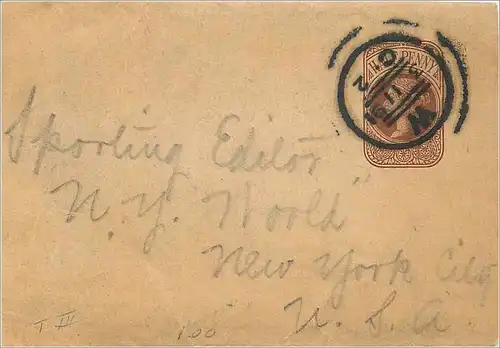 PENNY
W
Sporting Editor
N.Y. World
New York City
U. S. A.
T III
100